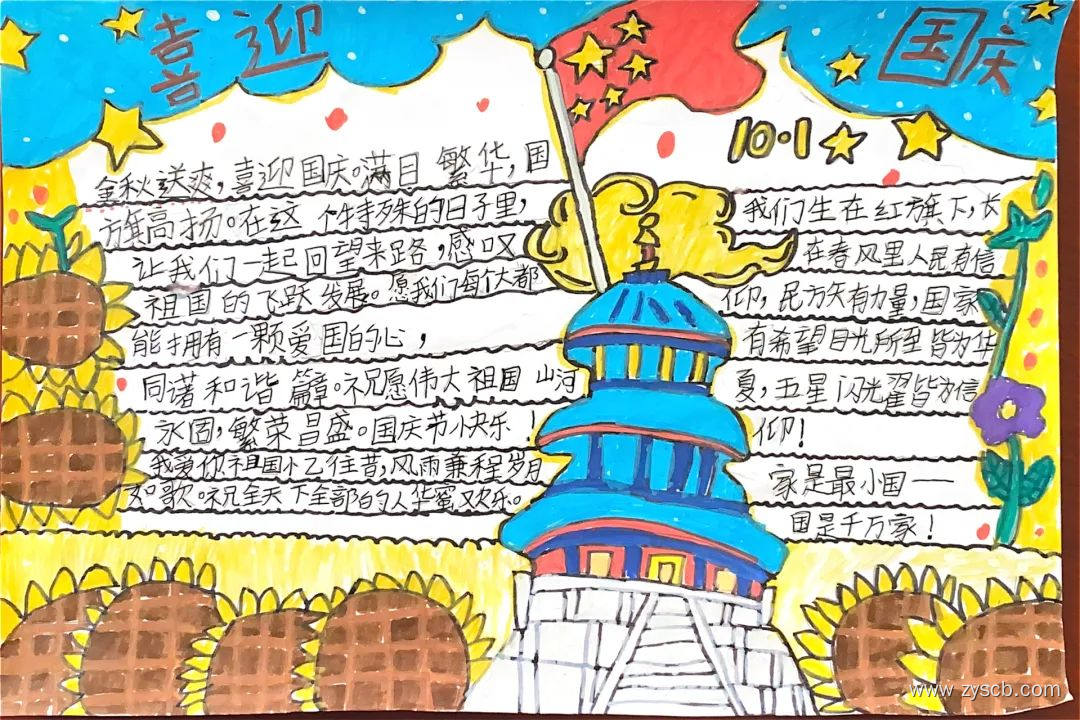 喜迎
国庆
10·1
金秋送爽,喜迎国庆。满目繁华,国
旗高扬。在这个特殊的日子里,
让我们一起回望来路,感叹
祖国的飞跃发展。愿我们每个人都
能拥有一颗爱国的心,
同谱和谐篇章。祝愿伟大祖国山河
永固,繁荣昌盛。国庆节小快乐!
我爱你祖国忆往昔,风雨兼程岁月
如歌。祝全天下全部的人华蜜欢乐。
我们生在红旗下,长
在春风里人民有信
仰,民族有力量,国家
有希望目光所至皆为华
夏,五星闪光皆为信
仰!
家是最小国——
国是千万家!
www.zyscb.com